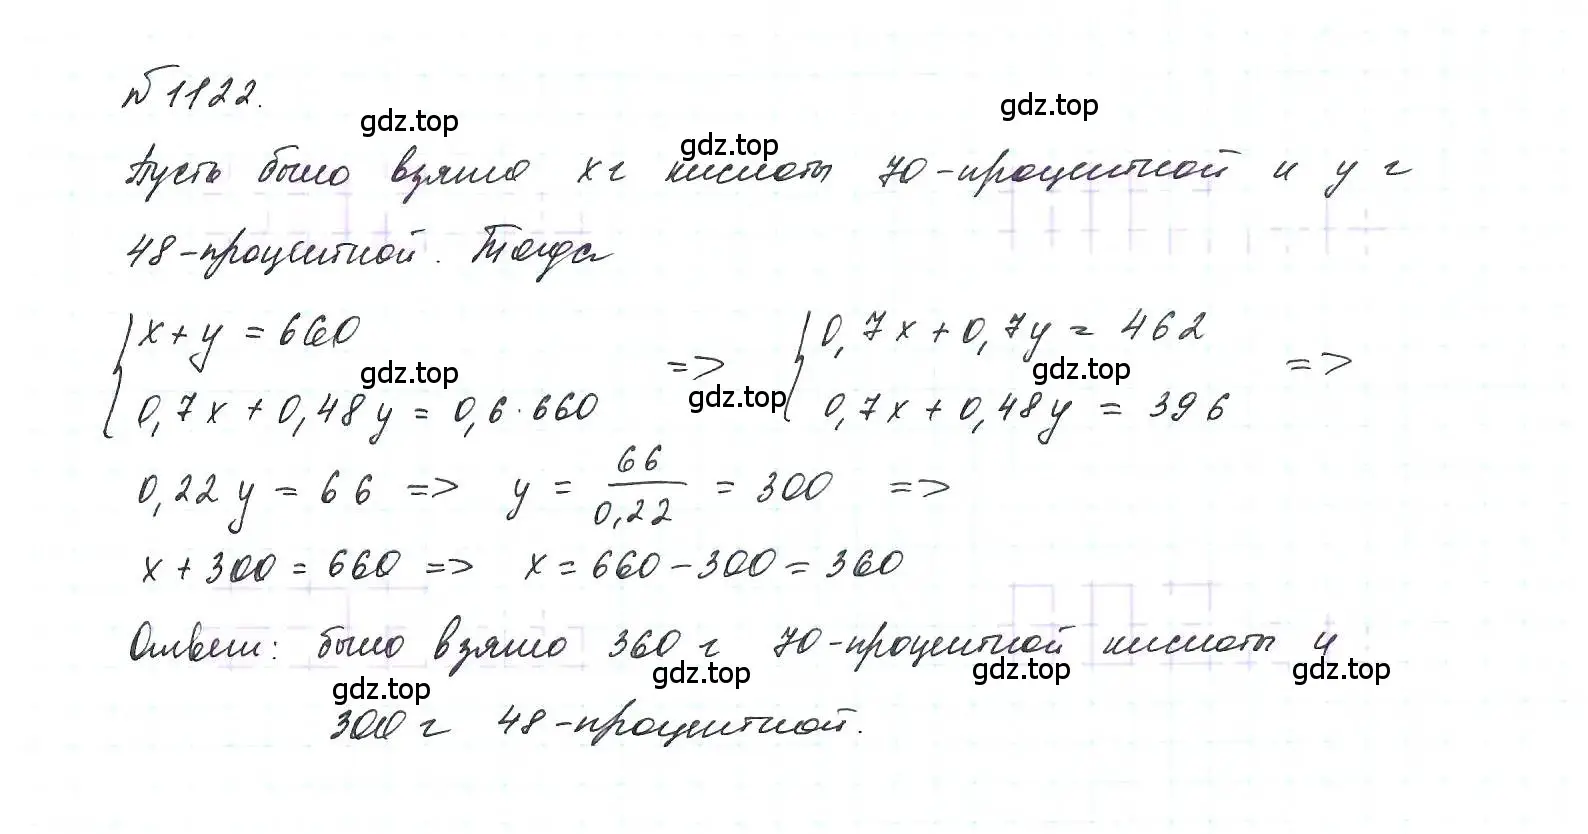 №1122.
gdz.top
gdz.top
gdz.top
Пусть было взято x г кислоты 70-процентной и y г
48-процентной. Тогда
{ x + y = 660
0,7x + 0,48y = 0,6·660
=>
{ 0,7x + 0,7y = 462
0,7x + 0,48y = 396
=>
gdz.top
gdz.top
gdz.top
0,22y = 66 => y = 66/0,22 = 300 =>
x + 300 = 660 => x = 660 - 300 = 360
Ответ: было взято 360 г 70-процентной кислоты и
gdz.top
gdz.top
gdz.top
gdz.top
300 г 48-процентной.